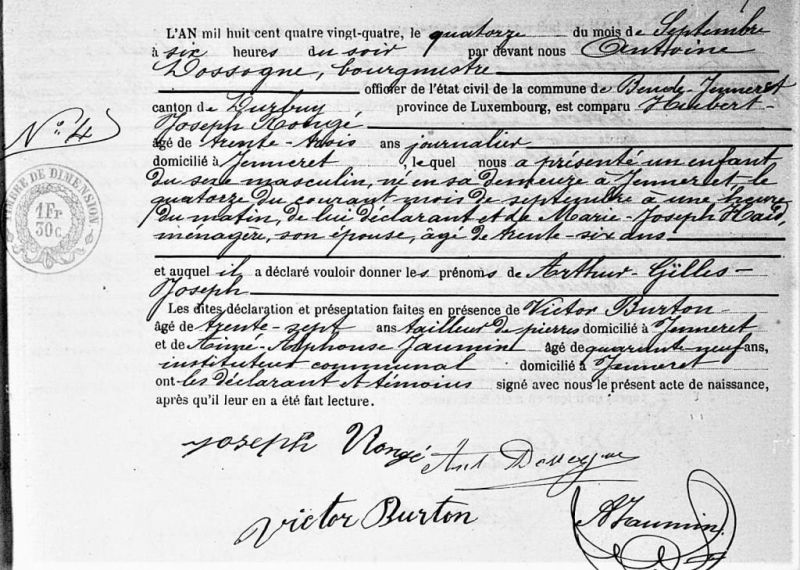 L'AN mil huit cent quatre vingt-quatre, le quatorze du mois de Septembre
à six heures du soir par devant nous Antoine
Dossogne, bourgmestre
officier de l'état civil de la commune de Bende-Jenneret
canton de Durbuy province de Luxembourg, est comparu Hubert-
Joseph Rongé
No. 4
âgé de trente-trois ans journalier
domicilié à Jenneret, lequel nous a présenté un enfant
du sexe masculin, né en sa demeure à Jenneret le
quatorze du courant mois de septembre à une heure
du matin, de lui déclarant et de Marie-Joseph Haid,
ménagère, son épouse, âgé de trente-six ans
TIMBRE DE DIMENSION
1 Fr
30 c
et auquel il a déclaré vouloir donner les prénoms de Arthur-Gilles-
Joseph
Les dites déclaration et présentation faites en présence de Victor Burton
âgé de trente-sept ans tailleur de pierres domicilié à Jenneret
et de Aimé-Alphonse Jaumin âgé de quarante neuf ans,
instituteur communal domicilié à Jenneret
ont les déclarant et témoins signé avec nous le présent acte de naissance,
après qu'il leur en a été fait lecture.
Joseph Rongé
Ant Dossogne
Victor Burton
A Jaumin